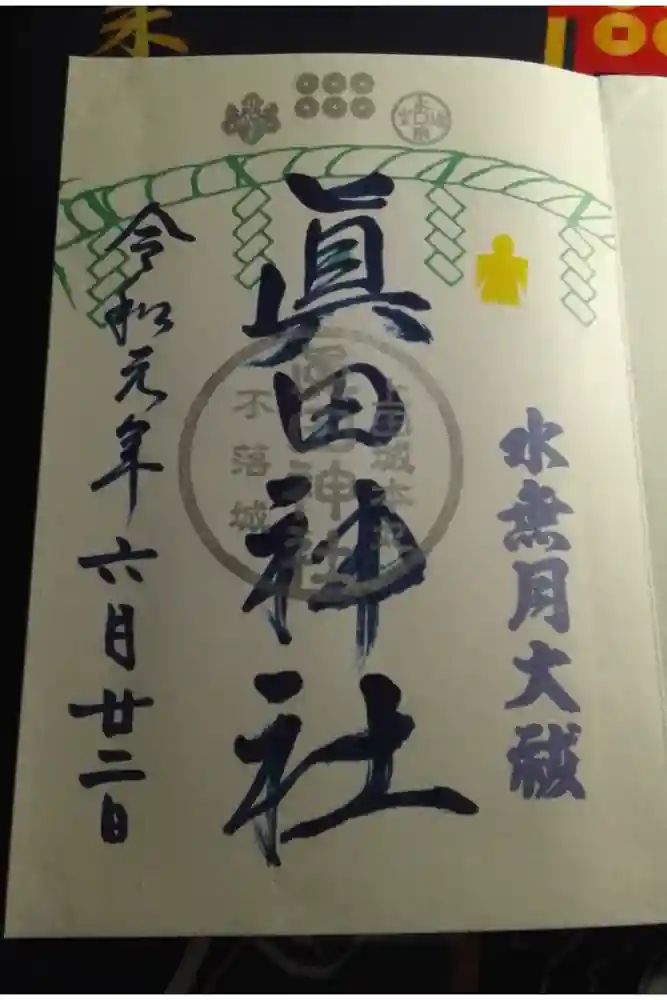 水無月大祓
眞田神社
上田城本丸
眞田神社
不落城
令和元年六月廿二日